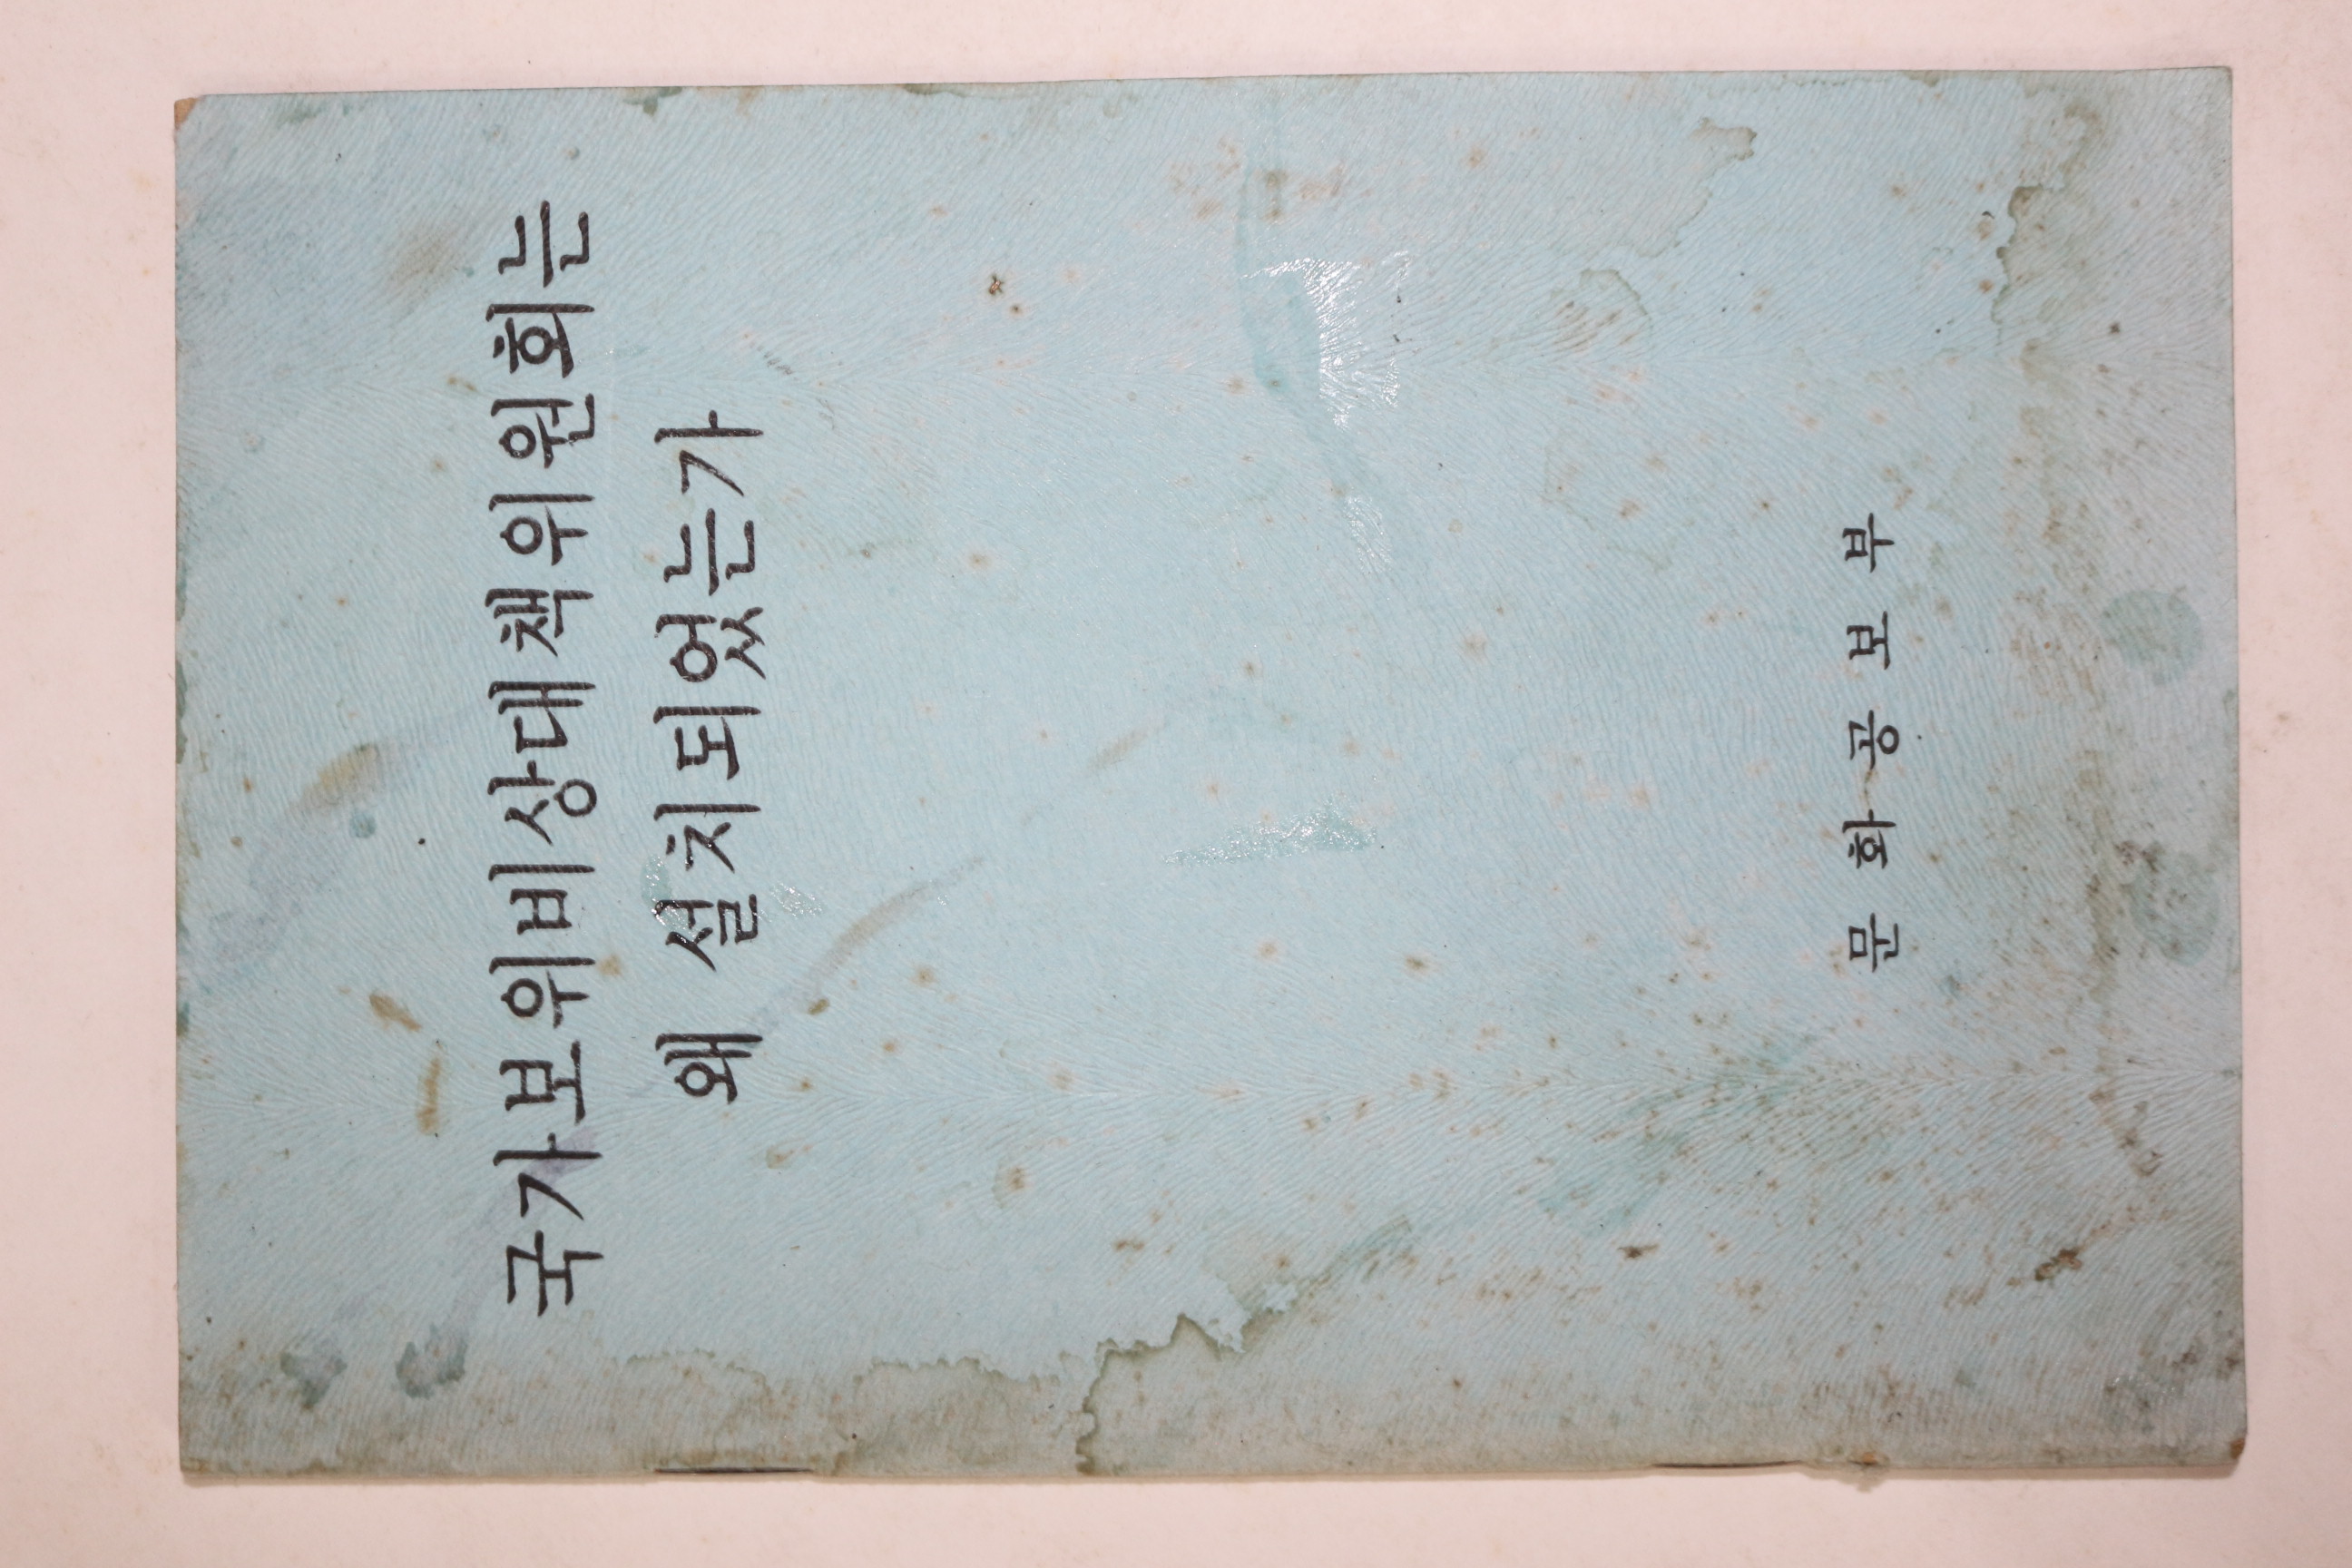 국가보위비상대책위원회는
왜 설치되었는가
문화공보부